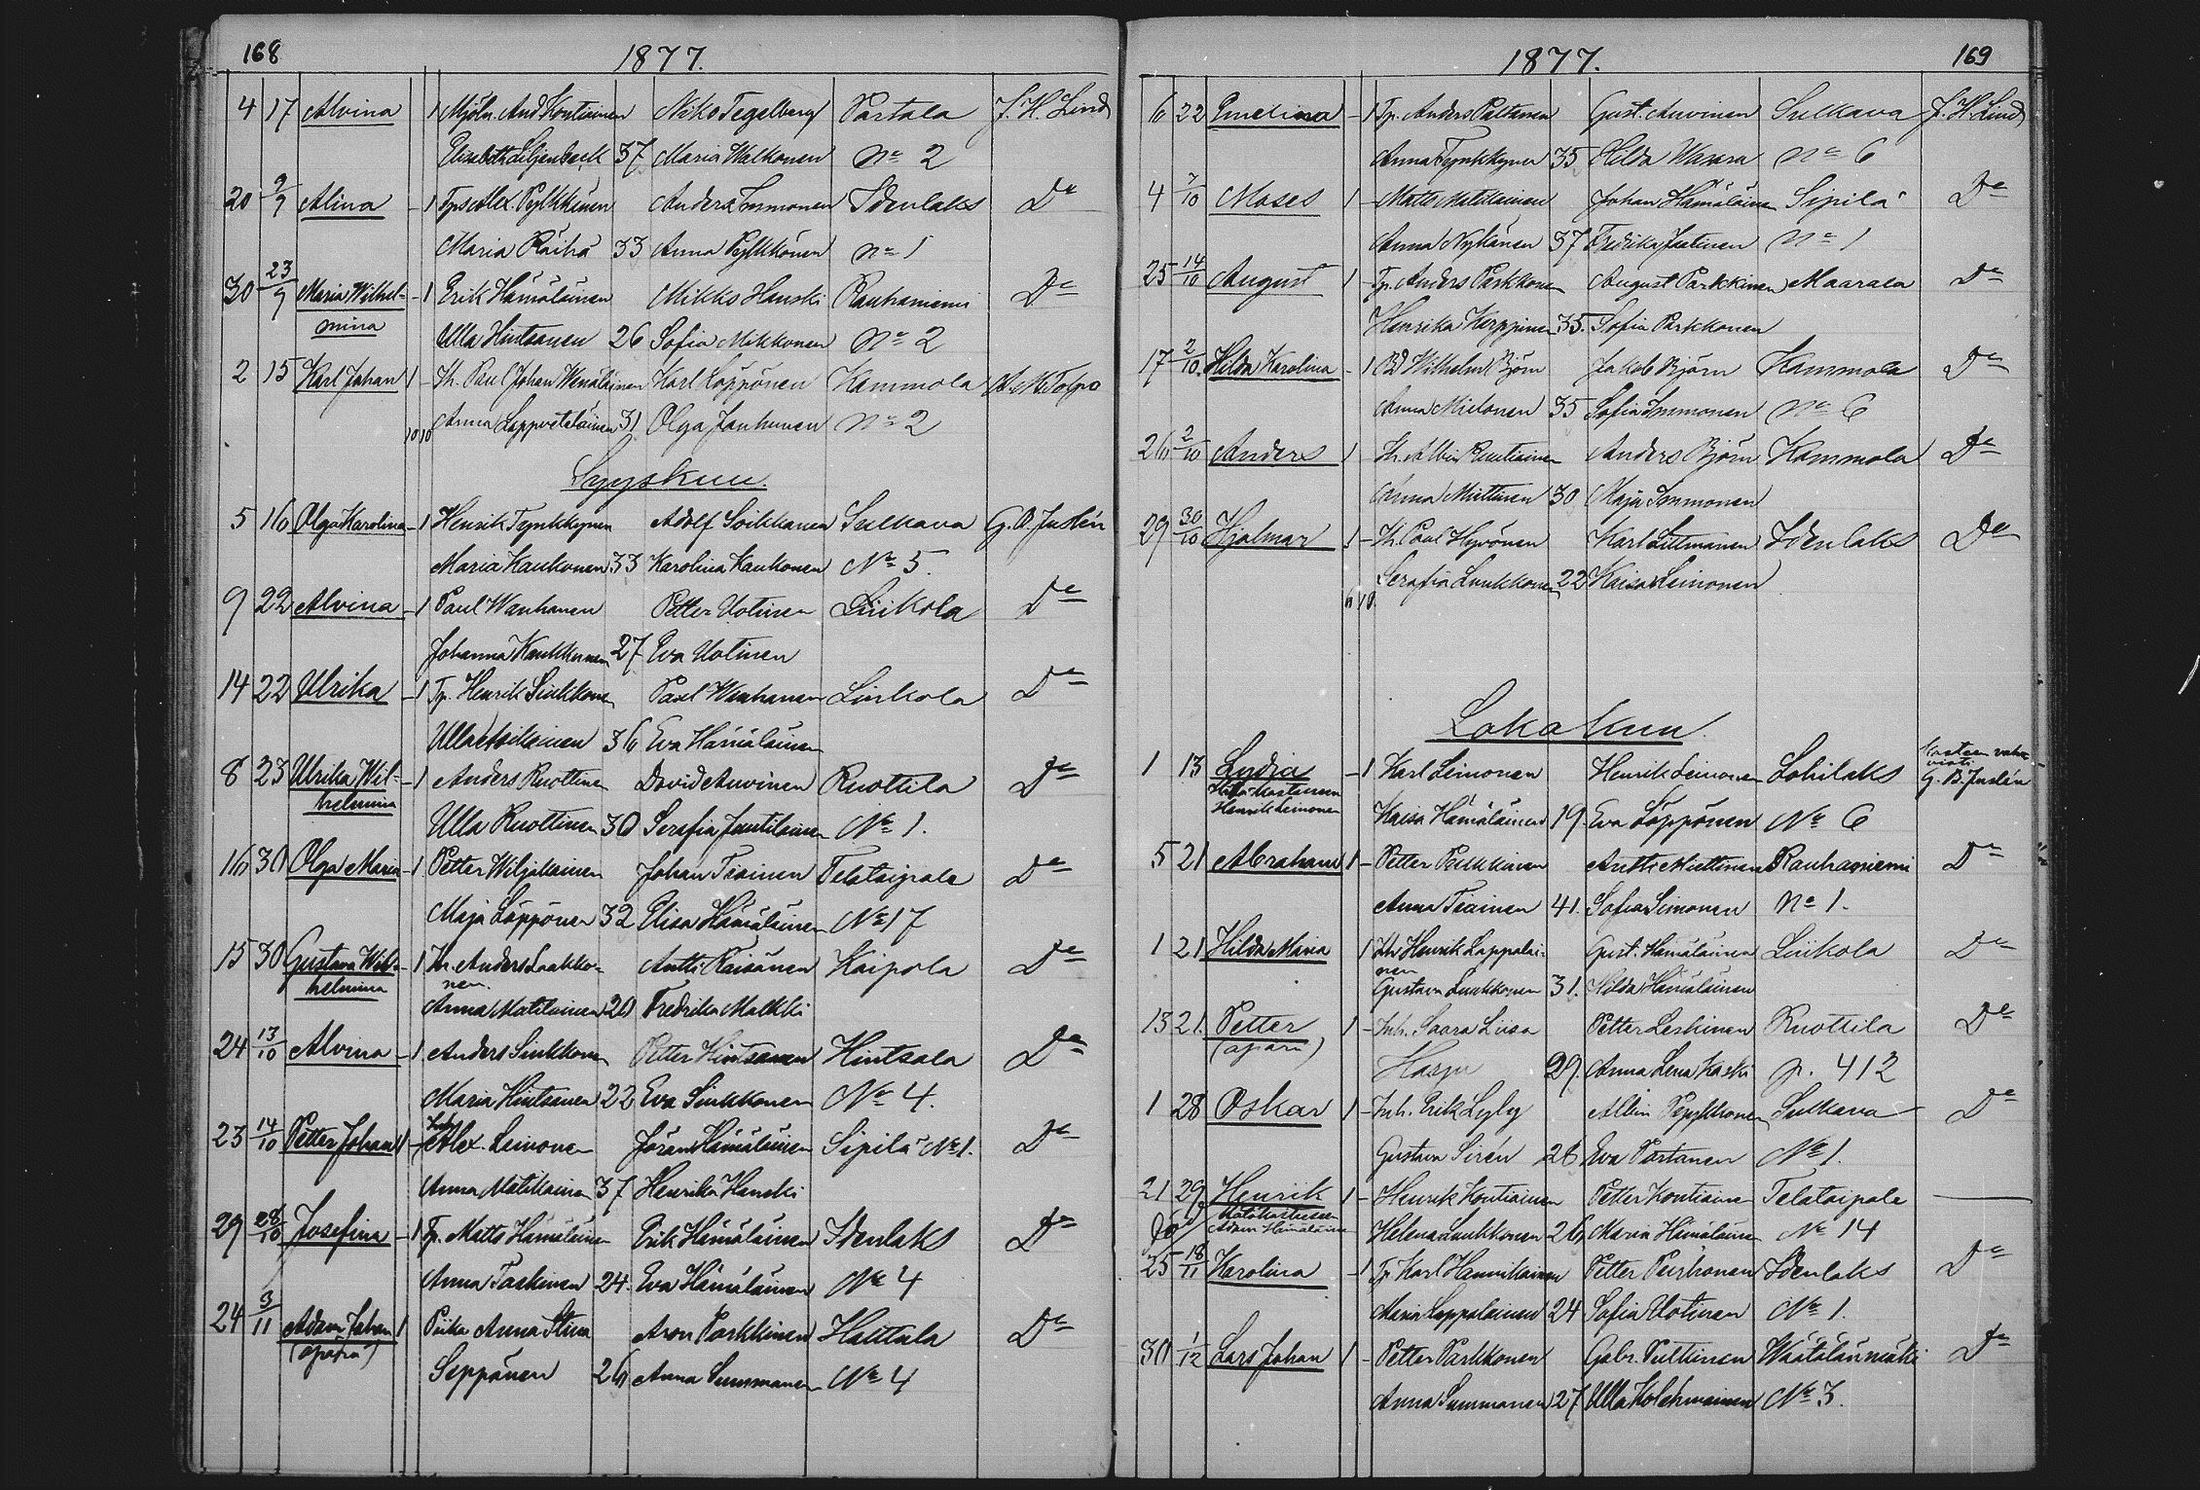 168
1877.
4 17 Alvina 1 Mjöln. And. Kontiainen Niko Tegelberg Partala J. H. Lind
Elisabeth Liljenback 37 Maria Walkonen No 2
20 9/9 Alina 1 Alex. Pylkkänen Anders Immonen Idenlaks Do
Maria Räihä 33 Anna Pylkkönen No 1
30 23/9 Maria Wilhel- 1 Erik Hämäläinen Mikko Hanski Rauhaniemi Do
mina Ulla Hintsanen 26 Sofia Mikkonen No 2
2 15 Karl Johan 1 Th. Paul Johan Wenäläinen Karl Löppönen Kammola
10 10 Anna Lappveteläinen 31 Olga Janhunen No 2
Syyskuu.
5 16 Olga Karolina 1 Henrik Tynkkynen Adolf Soikkanen Sulkava G. B. Juslén
Maria Kaukonen 33 Karolina Kaukonen No 5.
9 22 Alvina 1 Paul Wanhanen Petter Uotinen Liikola Do
Johanna 27 Eva Uotinen
14 22 Ulrika 1 Tp. Henrik Sinkkonen Paul Wanhanen Liikola Do
Ulla 36 Eva Hämäläinen
8 23 Ulrika Wil- 1 Anders Ruottinen David Auvinen Ruottila Do
helmina Ulla Ruottinen 30 Serafia Jantilainen No 1.
16 30 Olga Maria 1 Petter Wiljakainen Johan Tiainen Telataipale Do
Maja Löppönen 32 Elisa Hämäläinen No 17
15 30 Gustava Wil- 1 Th. Anders Laakko- Antti Räisänen Kaipola Do
helmina nen. Anna Matilainen 20 Fredrika Malkki
24 13/10 Alvina 1 Anders Sinkkonen Petter Hintsanen Hintsala Do
Maria Hintsanen 22 Eva Sinkkonen No 4.
23 14/10 Petter Johan 1 Alex. Leinonen Göran Hämäläinen Sipilä No 1. Do
Anna Matikainen 37 Henrika Hanski
29 28/10 Josefina 1 Tp. Matts Hämäläinen Erik Hämäläinen Idenlaks Do
Anna Taskinen 24. Eva Hämäläinen No 4
24 3/11 Adam Johan 1 Piika Anna Stina Aron Parkkinen Halttula Do
(äpärä) Seppänen 26 Anna Summanen No 4
1877.
169
6 22 Emelina 1 Tp. Anders Paltanen Gust. Auvinen Sulkava J. H. Lind
Anna Tynkkynen 35 Hilda Wasara No 6
4 7/10 Moses 1 Matts Matilainen Johan Hämäläinen Sipilä Do
Anna Nykänen 37 Fredika Jäntinen No 1
25 14/10 August 1 Tp. Anders Parkkonen August Parkkinen Maarala Do
Henrika Kerppinen 35. Sofia Parkkonen
17 2/10 Hilda Karolina 1 Wilhelm Björn Jakob Björn Kammola Do
Anna Mielonen 35 Sofia Immonen No 6
26 2/10 Anders 1 Th. Albin Anders Björn Kammola Do
Anna Miettinen 30 Maja Immonen
29 30/10 Hjalmar 1 Th. Paul Hyvönen Karl Littmanen Idenlaks Do
6 10. Serafia Luukkonen 22 Kaisa Leinonen
Lokakuu.
1 13 Lydia 1 Karl Leinonen Henrik Leinonen Lohilaks G. B. Juslén
Henrik Leinonen Kaisa Hämäläinen 19. Eva Löppönen No 6
5 21 Abraham 1 Petter Parkkinen Antti Miettinen Rauhaniemi Do
Anna Tiainen 41. Sofia Simonen No 1.
1 21 Hilda Maria 1 Henrik Lappalai- Gust. Hämäläinen Liikola Do
nen Gustava Luukkonen 31. Hilda Hämäläinen
13 21. Petter 1 Inh. Saara Liisa Petter Leskinen Ruottila Do
(äpärä) Haspu 29. Anna Lena Kaski p. 412
1 28 Oskar 1 Inh. Erik Lyly Albin Pöyhönen Sulkava Do
Gustava Sirén 26 Eva Partanen No 1.
21 29 Henrik 1 Henrik Kontiainen Petter Kontiainen Telataipale
Adam Hämäläinen Helena Luukkonen 26 Maria Hämäläinen No 14
25 18/11 Karolina 1 Tp. Karl Hannikainen Petter Idenlaks Do
Maria Lappalainen 24 Sofia Uotinen No 1.
30 1/12 Lars Johan 1 Petter Parkkonen Gabr. Pulkkinen Do
Anna Summanen 27 Ulla Kolehmainen No 3.